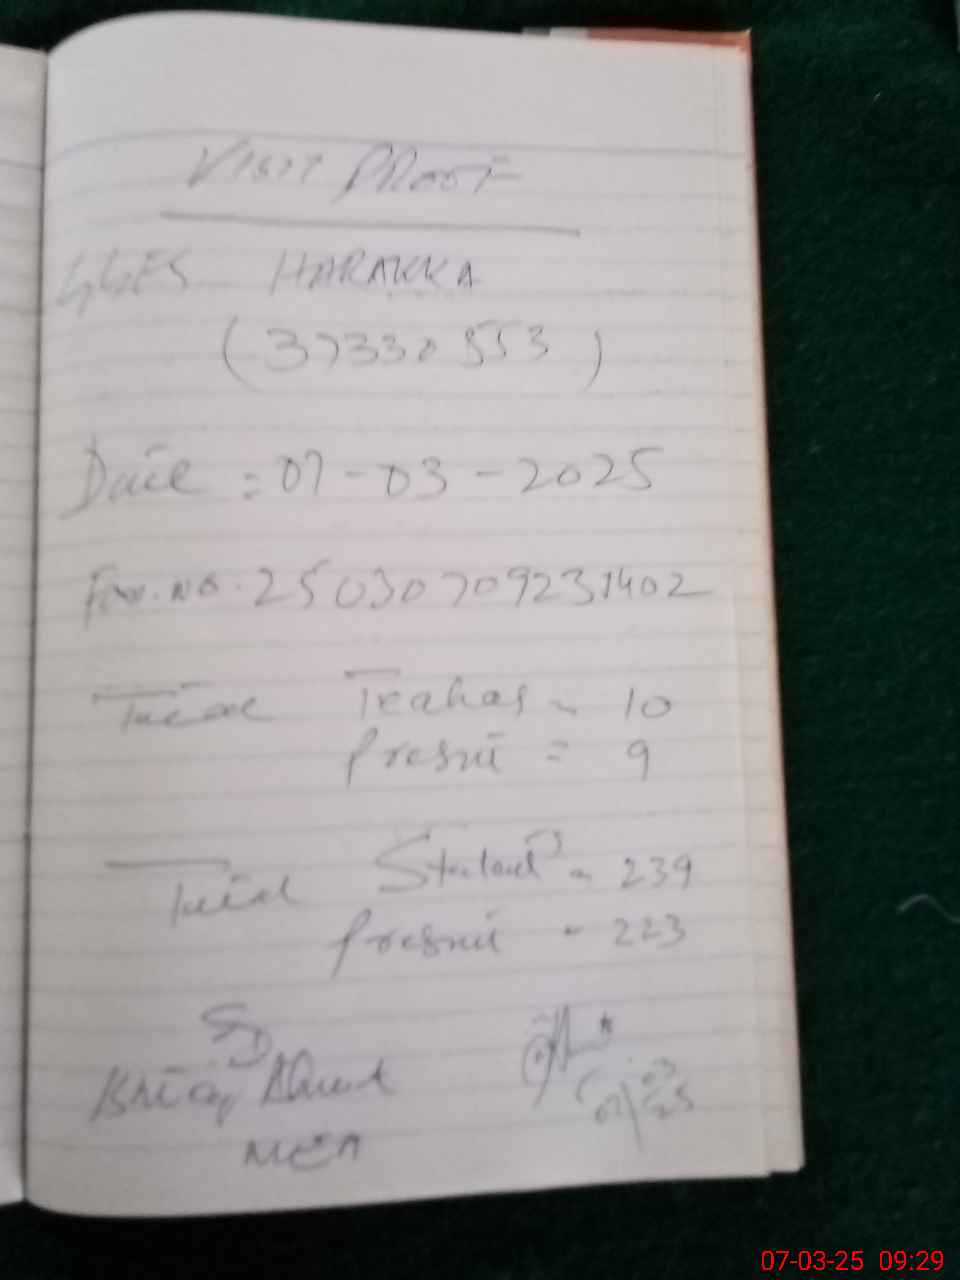 VISIT PROOF
GGES HARAKKA
(37330553)
Date = 07-03-2025
25030709231402
Total Teachers = 10
Present = 9
Total Student = 239
Present = 223
SD
Ahmed
MEA
07-03-25 09:29